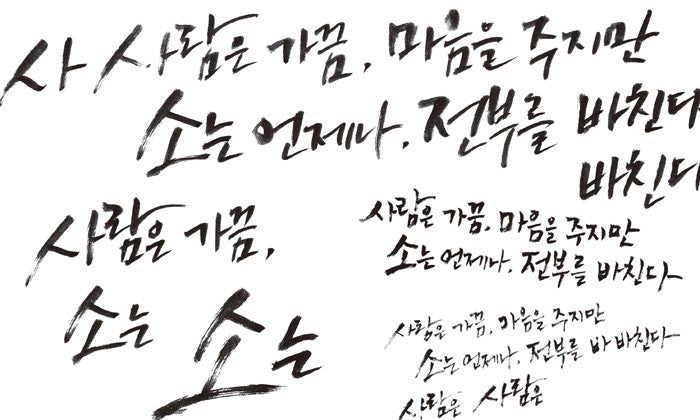 사 사람은 가끔, 마음을 주지만
소는 언제나, 전부를 바친다
바친다
사람은 가끔,
소는 소는
사람은 가끔, 마음을 주지만
소는 언제나, 전부를 바친다
사랑은 가끔, 마음을 주지만
소는 언제나, 전부를 바 바친다
사람은 사람은